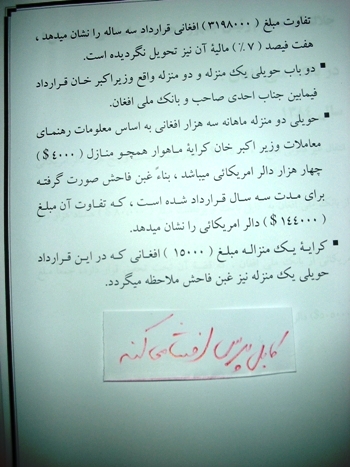 تفاوت مبلغ ( ۳۱۹۸۰۰۰ ) افغانی قرارداد سه ساله را نشان میدهد ،
هفت فیصد ( ۷٪ ) مالیهٔ آن نیز تحویل نگردیده است.
▪ دو باب حویلی یک منزله و دو منزله واقع وزیراکبر خان قرارداد
فیمابین جناب احدی صاحب و بانک ملی افغان.
▪ حویلی دو منزله ماهانه سه هزار افغانی به اساس معلومات رهنمای
معاملات وزیر اکبر خان کرایهٔ ماهوار همچو منازل ( ۴۰۰۰ $ )
چهار هزار دالر امریکائی میباشد ، بناءً غبن فاحش صورت گرفته
برای مدت سه سال قرارداد شده است ، که تفاوت آن مبلغ
( ۱۴۴۰۰۰ $ ) دالر امریکائی را نشان میدهد.
▪ کرایهٔ یک منزاله مبلغ ( ۱۵۰۰۰ ) افغانی که در این قرارداد
حویلی یک منزله نیز غبن فاحش ملاحظه میگردد.
کابل پرس افشا می کند